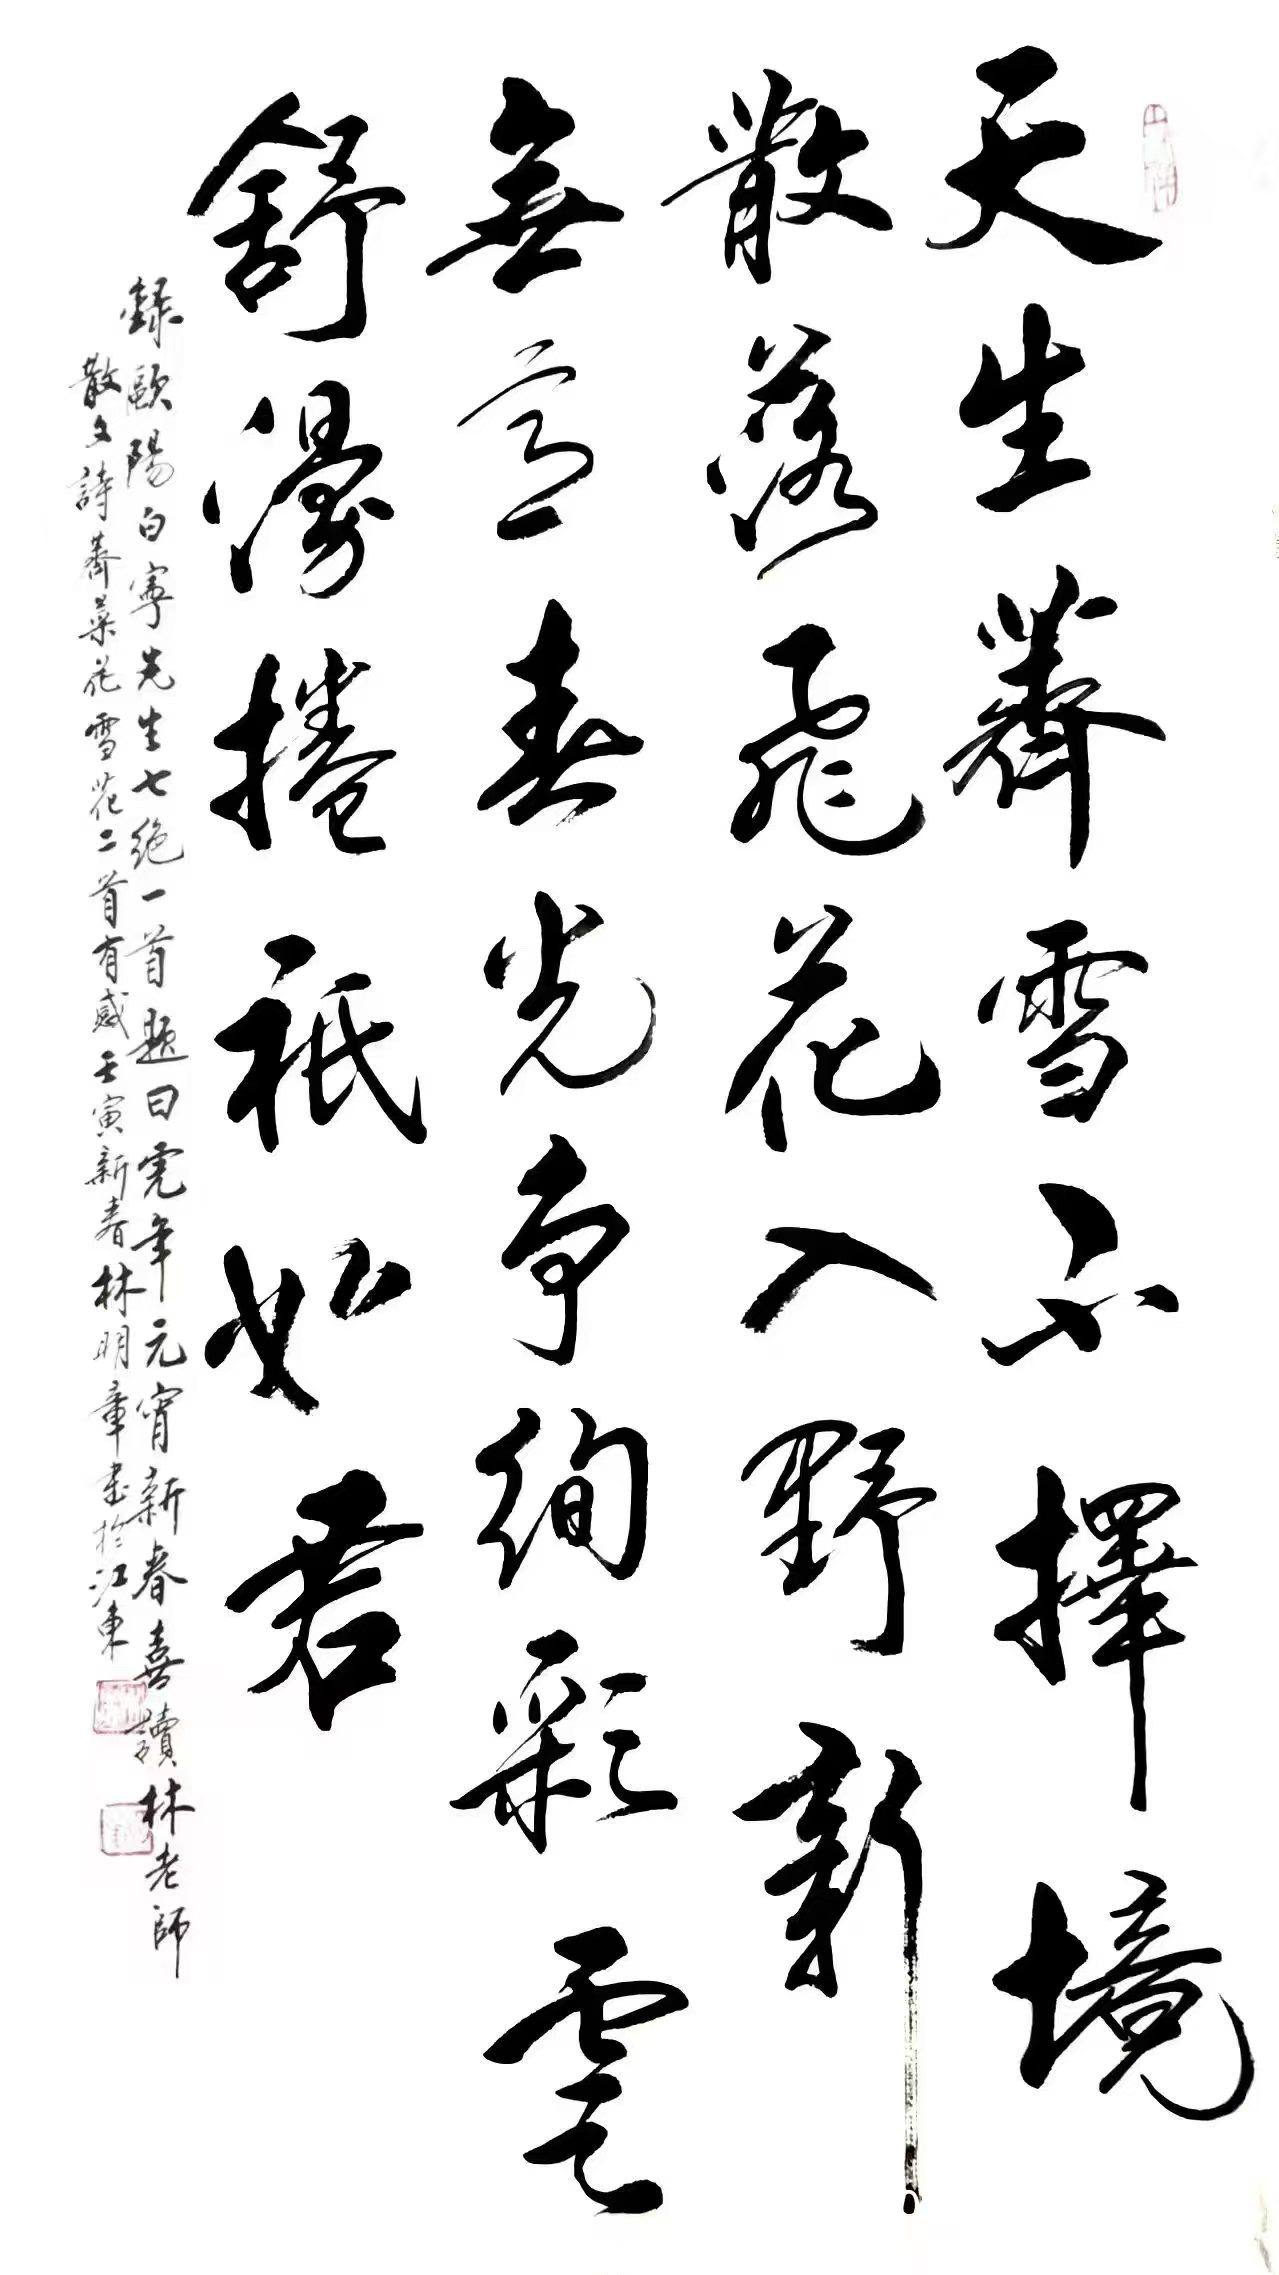 天生薺雪不擇境
散落飛花入野新
無意春光争絢彩雲
舒漫捲祇如君
録歐陽白寧先生七絶一首題曰虎年元宵新春喜讀林老師
散文詩薺菜花雪花二首有感壬寅新春林明章書於江東